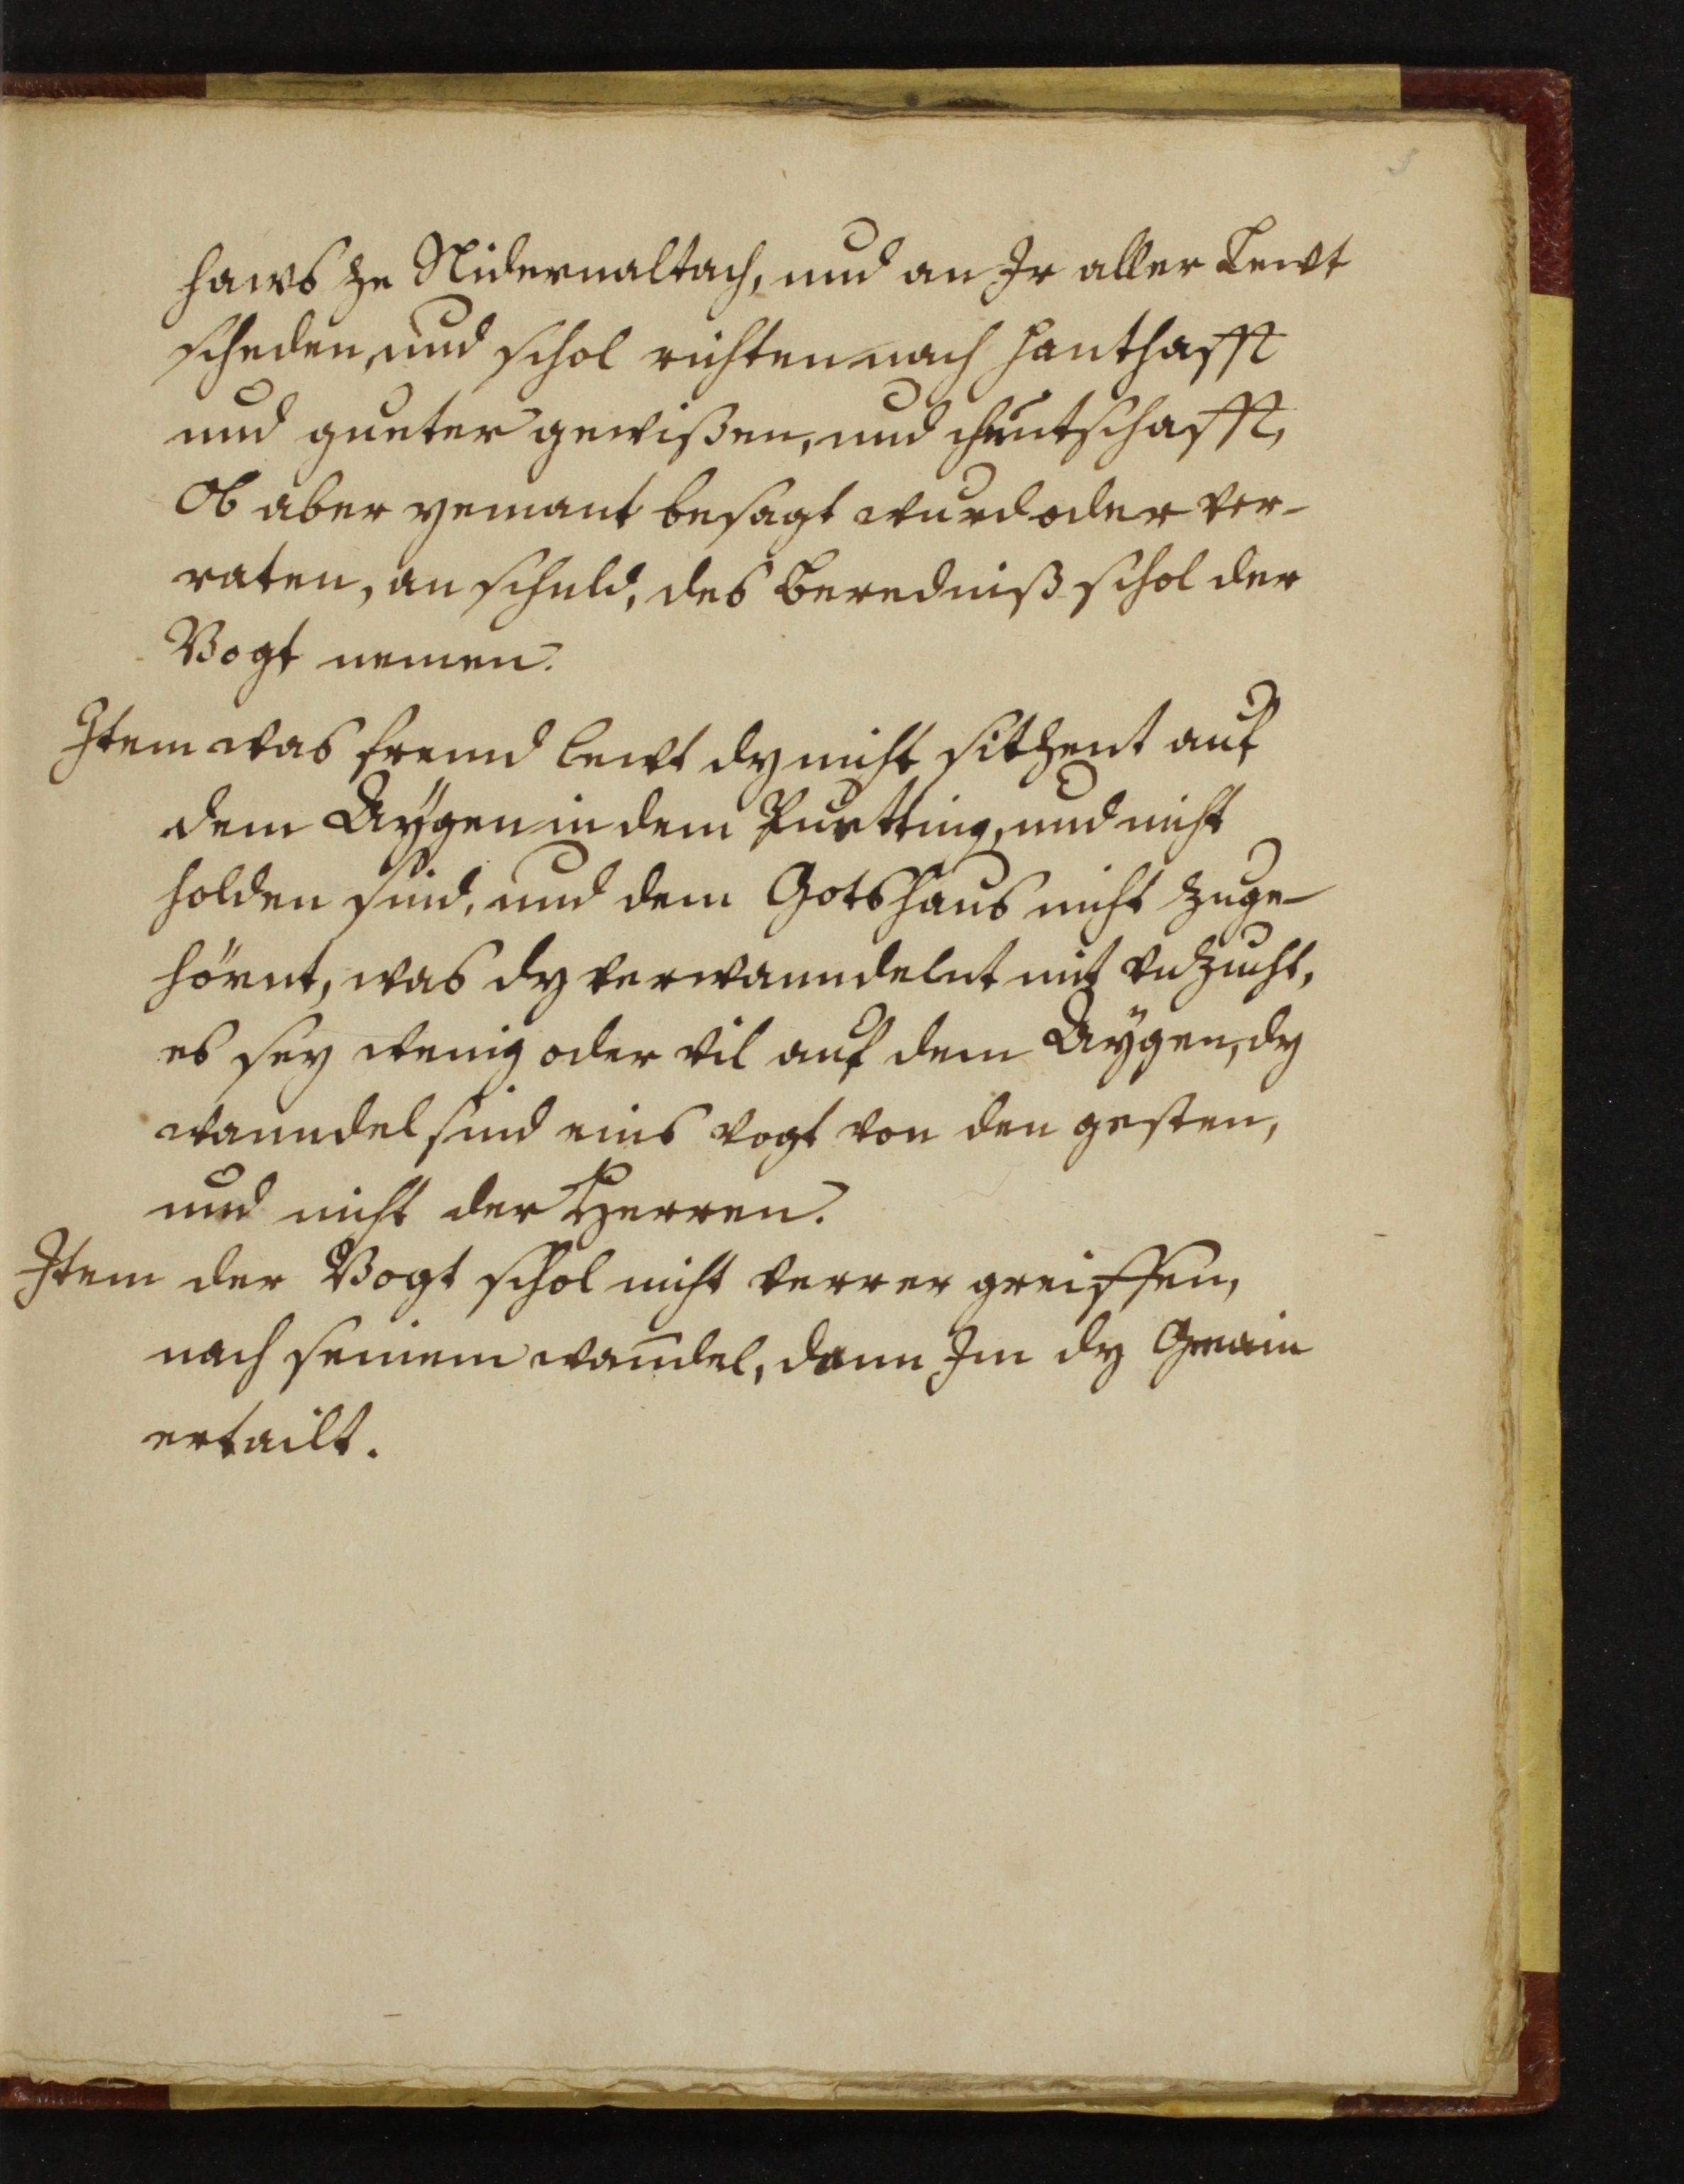 haws ze Nidernaltach, und an Ir aller Lewt
scheden, und schol richten nach hanthafft
und gueter gewißen, und chuntschafft,
Ob aber yemant besagt wurd oder ver-
raten, an schuld, des Beredniß schol der
Vogt nemen.
Item was fremd lewt dy nicht sitzent auf
dem Aÿgen in dem Purkting, und nicht
holden sind, und dem Gotshaus nicht zuge-
hörnt, was dy verwanndelnt mit vnzucht,
es sey wenig oder vil auf dem Aÿgen, dy
wanndel sind eins vogt von den gesten,
und nicht der Herren.
Item der Vogt schol nicht verrer greiffen,
nach seinem wandel, dann Im dy Gmain
ertailt.